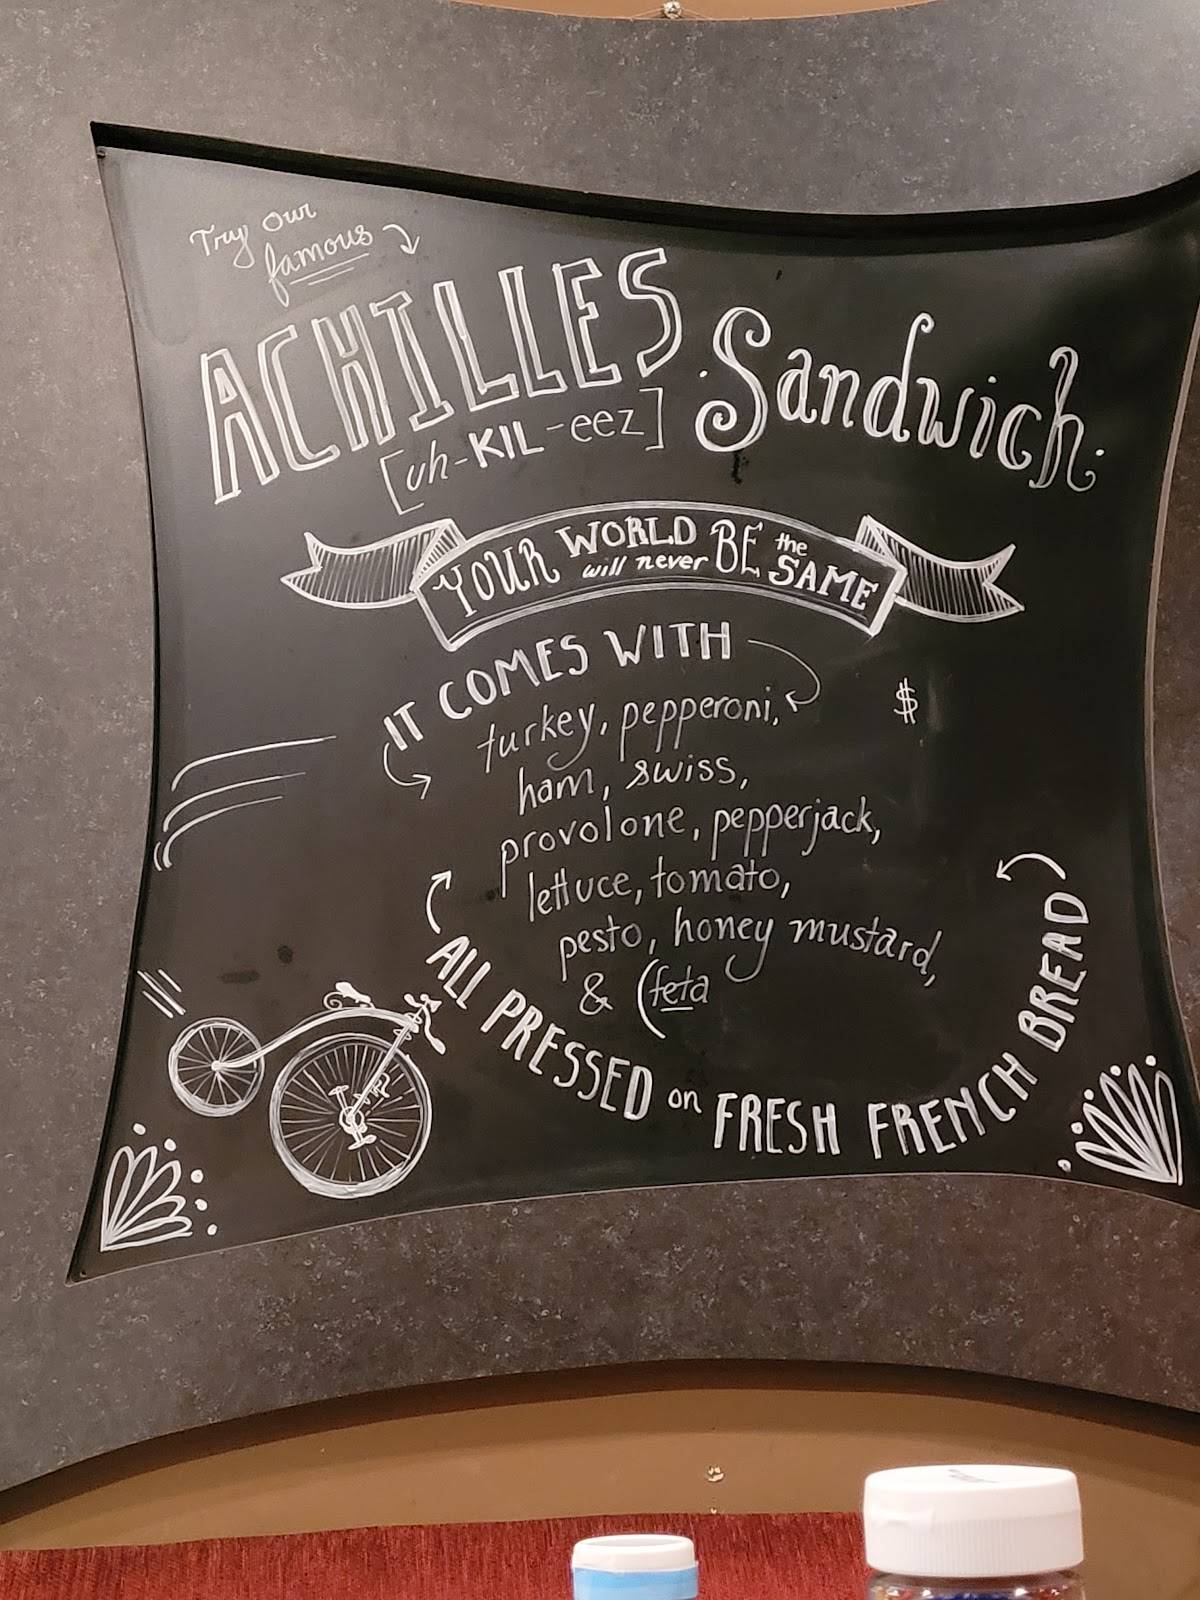 Try our
famous
ACHILLES Sandwich
[uh-KIL-eez]
YOUR WORLD will never BE the SAME
IT COMES WITH
$
turkey, pepperoni,
ham, swiss,
provolone, pepperjack,
lettuce, tomato,
pesto, honey mustard,
& (feta
ALL PRESSED on FRESH FRENCH BREAD